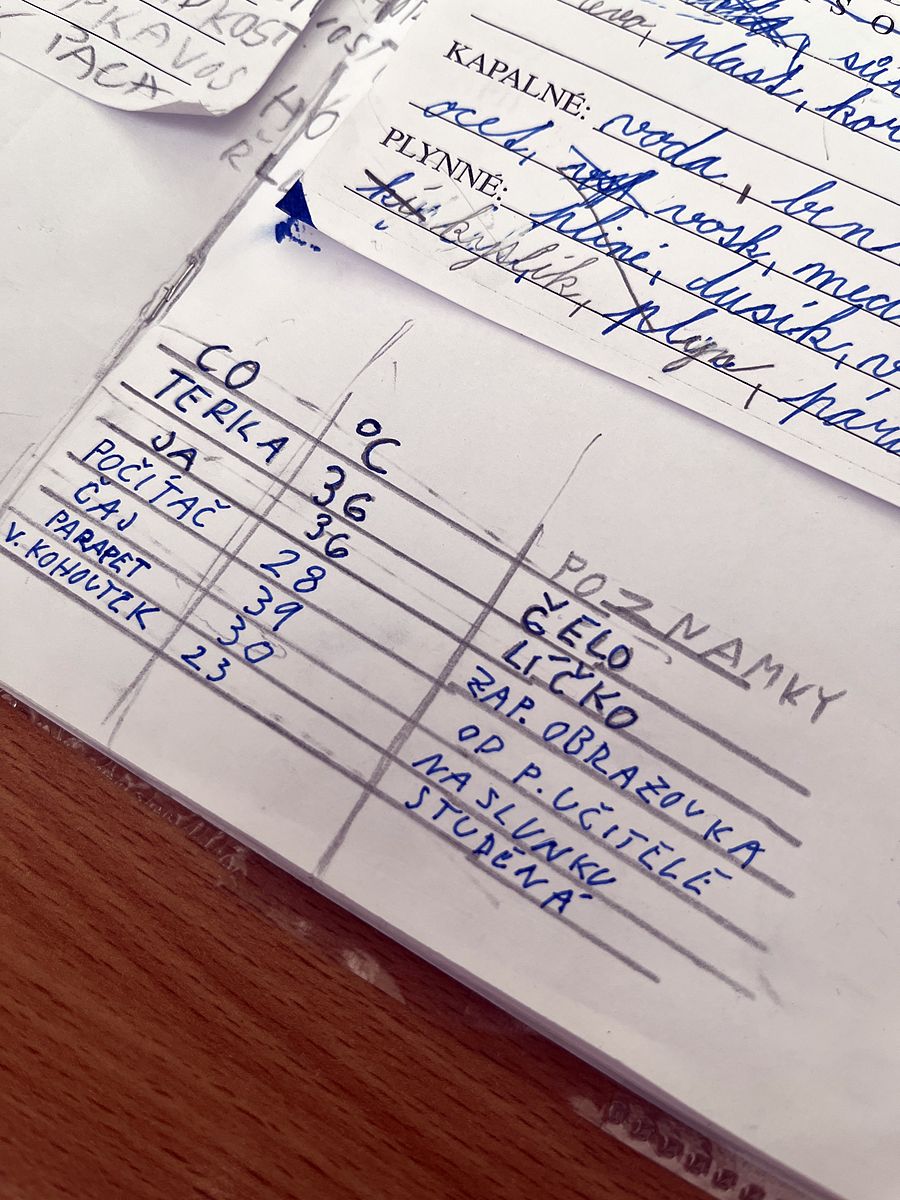 PACA
plast, kor
KAPALNÉ: voda, ben
ocet, vosk, med
PLYNNÉ: plyné, dusík, v
kyslík, plyn, pára
CO °C POZNAMKY
TERKA 36 ČELO
JA 36 LÍČKO
POČÍTAČ 28 ZAP. OBRAZOVKA
ČAJ 39 OD P. UČITELÉ
PARAPET 30 NA SLUNKU
V. KOHOUTEK 23 STUDĚNÁ